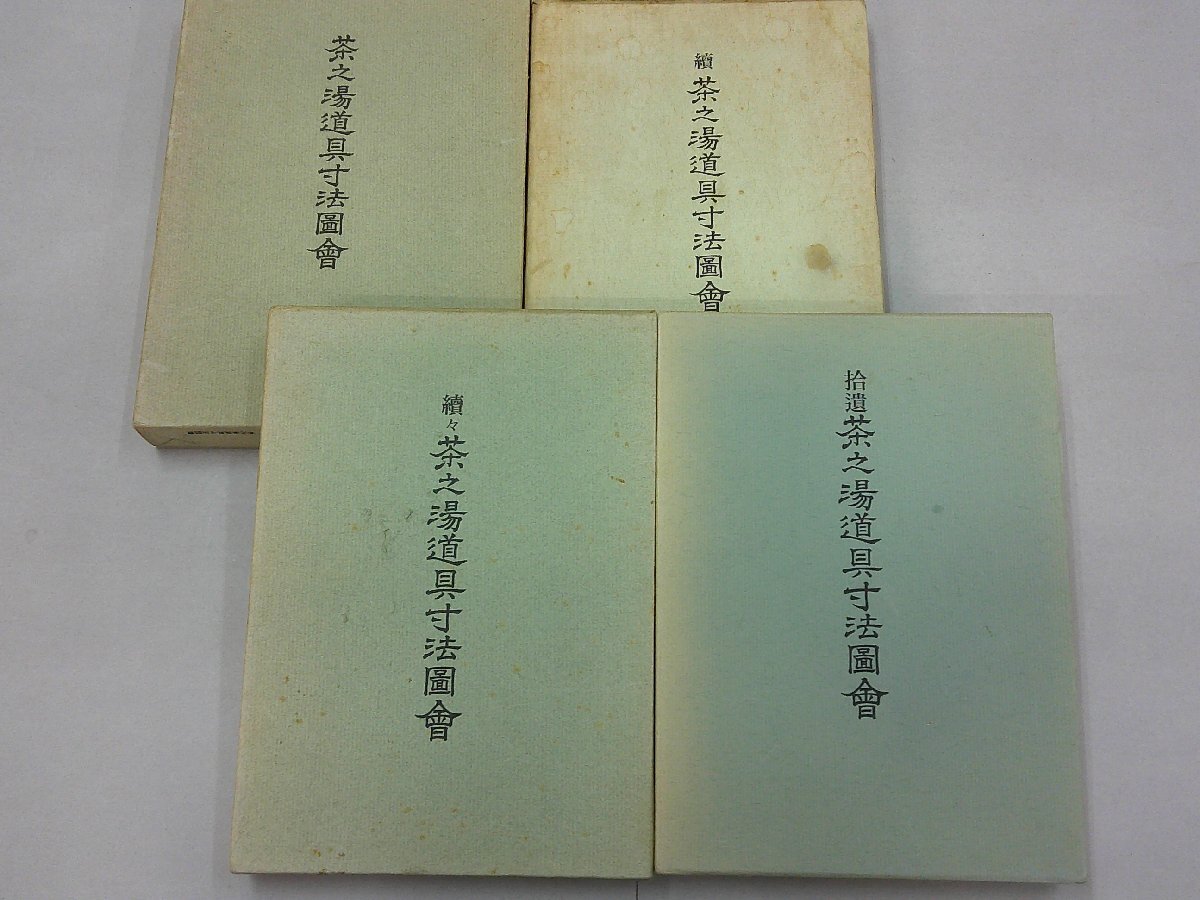 茶之湯道具寸法圖會
續 茶之湯道具寸法圖會
續々 茶之湯道具寸法圖會
拾遺 茶之湯道具寸法圖會